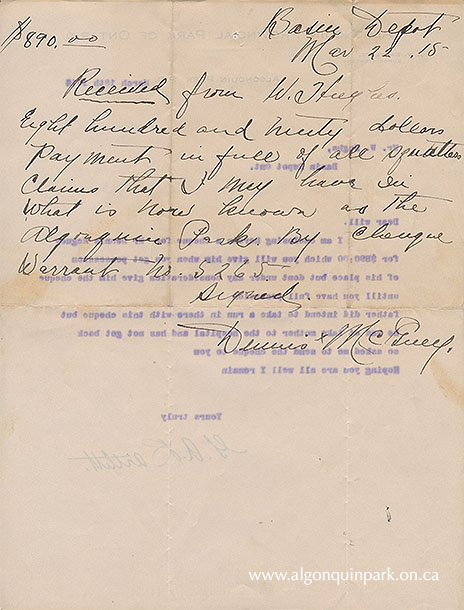 $890.00
Basin Depot
Mar 22 15
Received from W. Hughes.
Eight hundred and ninety dollars
payment in full of all squatters
claims that I may have in
what is now known as the
Algonquin Park By Cheque
Warrant No 5265
Signed
Dennis McGuey.
March 18th
Mr. W. Hughes,
Basin Depot Ont
Dear Will,
I am enclosing
for $890.00 which you will give him when you get possession
of his place but dont under any consideration give him the cheque
untill you have full
father did intend to take a run in there with this cheque but
mother to the hospital and has not got back
so asked me to send the cheque to you
Hoping you are all well I remain
Yours truly
www.algonquinpark.on.ca